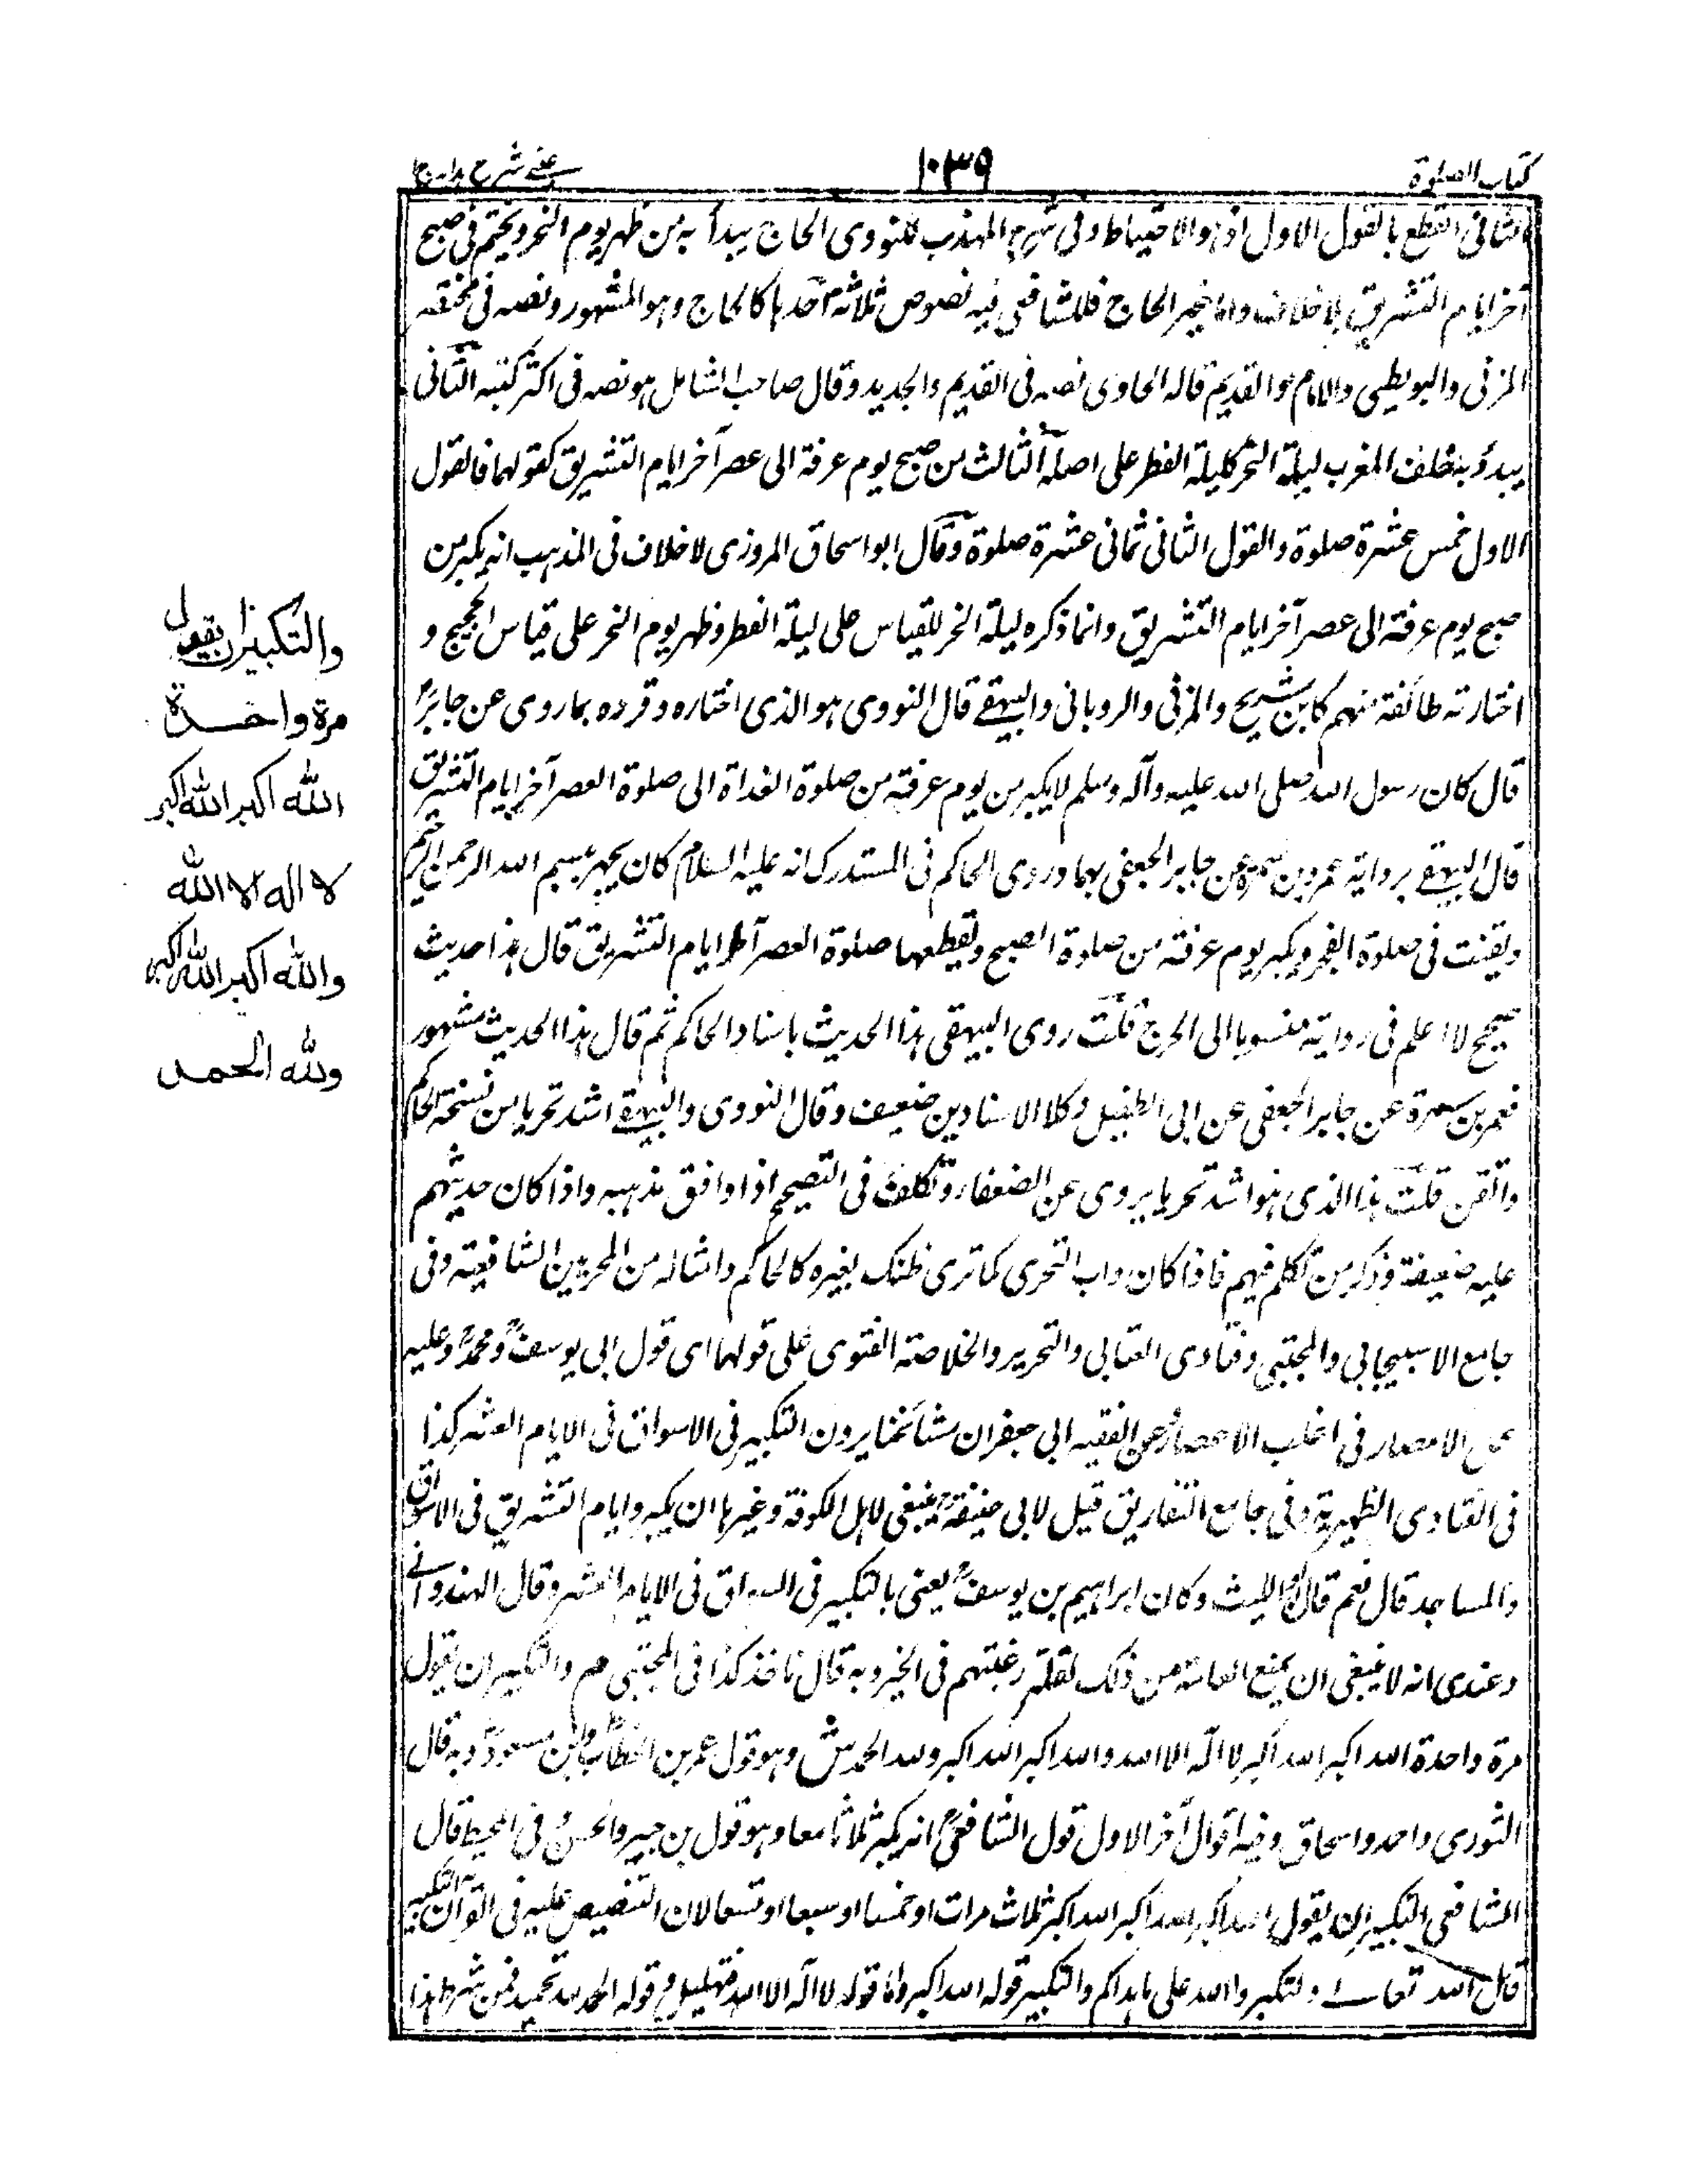 كتاب الصلوة
١٠٣٩
عينى شرح هداية
الثانى القطع بالقول الاول اذ هو الاحتياط وفى شرح المهذب للنووى الحاج يبدأ به من ظهر يوم النحر ويختم فى صبح
آخر ايام التشريق بلا خلاف واما غير الحاج فللشافعى فيه نصوص ثلاثة احدها كالحاج وهو المشهور ونصه فى مختصر
المزنى والبويطى والام والقديم قاله الحاوى نصه فى القديم والجديد وقال صاحب الشامل هو نصه فى اكثر كتبه الثانى
يبدؤ به خلف المغرب ليلة النحر كليلة الفطر على اصله الثالث من صبح يوم عرفة الى عصر آخر ايام التشريق كقولهما فالقول
الاول خمس عشرة صلوة والقول الثانى ثمانى عشرة صلوة وقال ابو اسحاق المروزى لا خلاف فى المذهب انه يكبر من
صبح يوم عرفة الى عصر آخر ايام التشريق وانما ذكره ليلة النحر للقياس على ليلة الفطر وظهر يوم النحر على قياس الحجيج و
اختارته طائفة منهم كابن شريح والمزنى والرويانى والبيهقى قال النووى هو الذى اختاره وقرده بما روى عن جابر
قال كان رسول الله صلى الله عليه وآله وسلم لا يكبر من يوم عرفة من صلوة الغداة الى صلوة العصر آخر ايام التشريق
قال البيهقى برواية عمرو بن سمرة عن جابر الجعفى بهما وروى الحاكم فى المستدرك انه عليه السلام كان يجهر ببسم الله الرحمن الرحيم
ويقنت فى صلوة الفجر ويكبر يوم عرفة من صلوة الصبح ويقطعها صلوة العصر آخر ايام التشريق قال هذا حديث
صحيح لا اعلم فى رواية منسوبا الى الجرح قلت روى البيهقى هذا الحديث باسناد الحاكم ثم قال هذا الحديث مشهور
فعمر بن سمرة عن جابر الجعفى عن ابى الطفيل وكلا الاسنادين ضعيف وقال النووى والبيهقى اشد تحريا من نسخة الحاكم
واتقن قلت هذا الذى هو اشد تحريا يروى عن الضعفاء وتكلف فى التصحيح اذا وافق مذهبه واذا كان حديثهم
عليه ضعيفة وذكر من تكلم فيهم فاذا كان داب التحرى كما ترى ظنك بغيره كالحاكم وامثاله من المحدثين الشافعية وفى
جامع الاسبيجابى والمجتبى وفتاوى العتابى والتحرير والخلاصة الفتوى على قولهما اى قول ابى يوسف ومحمد وعليه
عمل الامصار فى اغلب الاعصار وعن الفقيه ابى جعفر ان مشائخنا يرون التكبير فى الاسواق فى الايام العشر كذا
فى الفتاوى الظهيرية وفى جامع التفاريق قيل لابى حنيفة ينبغى لاهل الكوفة وغيرها ان يكبروا ايام التشريق فى الاسواق
والمساجد قال نعم قال ابو الليث وكان ابراهيم بن يوسف يعنى بالتكبير فى السواق فى الايام العشر وقال الهندوانى
وعندى انه لا ينبغى ان يمنع العامة من ذلك لقلة رغبتهم فى الخير وبه قال ناخذ كذا فى المجتبى م والتكبير ان يقول
مرة واحدة الله اكبر الله اكبر لا اله الا الله والله اكبر الله اكبر ولله الحمد ش وهو قول عمر بن الخطاب وابن مسعود وبه قال
الثورى واحمد واسحاق وفيه اقوال آخر الاول قول الشافعى انه يكبر ثلاثا معا وهو قول بن جبير والحسن فى المحيط قال
الشافعى التكبير ان يقول الله اكبر الله اكبر الله اكبر ثلاث مرات او خمسا او سبعا او تسعا لان التنصيص عليه فى القرآن التكبير
قال الله تعالى ولتكبروا الله على ما هداكم والتكبير قوله الله اكبر واما قوله لا اله الا الله فتهليل وقوله الحمد لله تحميد فمن شرط هذا
والتكبير ان يقول
مرة واحدة
الله اكبر الله اكبر
لا اله الا الله
والله اكبر الله اكبر
ولله الحمد